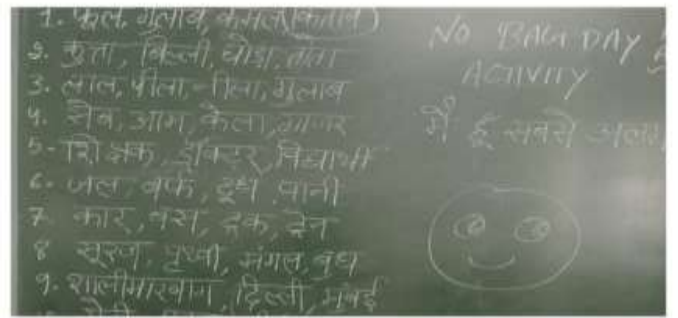 1. फूल, गुलाब, कमल, किताब
2. कुत्ता, बिल्ली, घोडा, तोता
3. लाल, पीला, नीला, गुलाब
4. सेब, आम, केला, गाजर
5. शिक्षक, डॉक्टर, विद्यार्थी
6. जल, बर्फ, दूध, पानी
7. कार, बस, ट्रक, ट्रेन
8 सूरज, पृथ्वी, मंगल, बुध
9. शालीमारबाग, दिल्ली, मुंबई
NO BAG DAY
ACTIVITY
मैं हूँ सबसे अलग